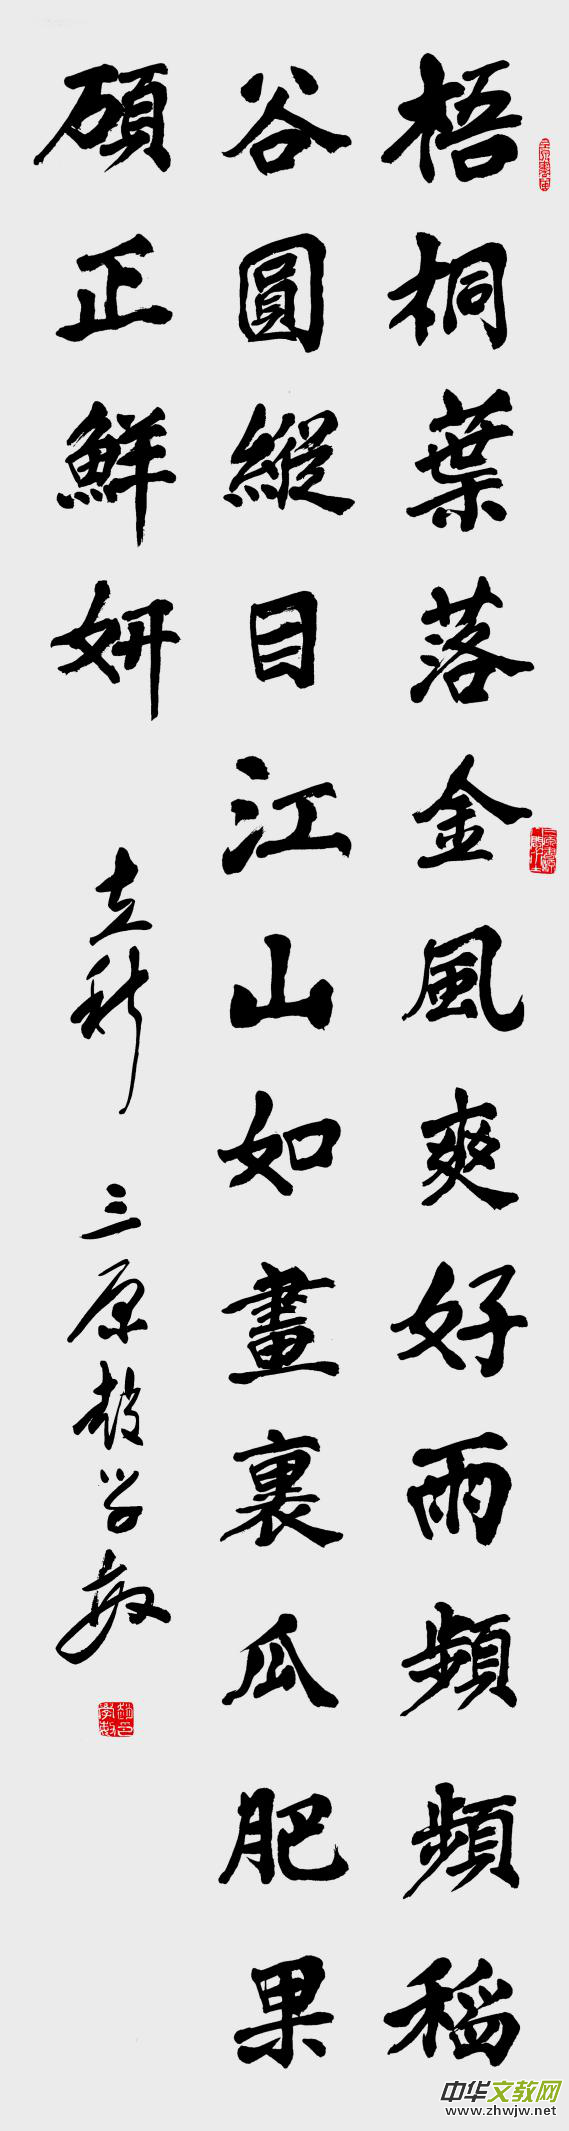 梧桐葉落金風爽好雨頻頻稻
谷圓縱目江山如畫裏瓜肥果
碩正鮮妍
立秋 三原趙学敏
趙學敏印
中华文教网
www.zhwjw.net